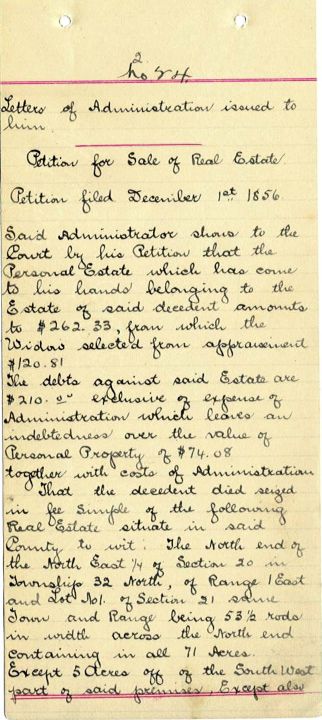 2
No 24.
Letters of Administration issued to
him.
Petition for Sale of Real Estate.
Petition filed December 1st 1856.
Said Administrator shows to the
Court by his Petition that the
Personal Estate which has come
to his hands belonging to the
Estate of said decedent amounts
to $262.33, from which the
Widow selected from appraisement
$120.81
The debts against said Estate are
$210.00 exclusive of expense of
Administration which leaves an
indebtedness over the value of
Personal Property of $74.08
together with costs of Administration
That the decedent died seized
in fee Simple of the following
Real Estate situate in said
County to wit: The North end of
the North East 1/4 of Section 20 in
Township 32 North, of Range 1 East
and Lot No1. of Section 21 same
Town and Range being 53 1/2 rods
in width across the North end
containing in all 71 Acres.
Except 5 Acres off of the South West
part of said premises, Except also